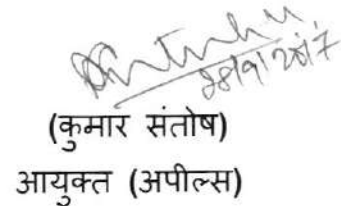 28/9/2017
(कुमार संतोष)
आयुक्त (अपील्स)